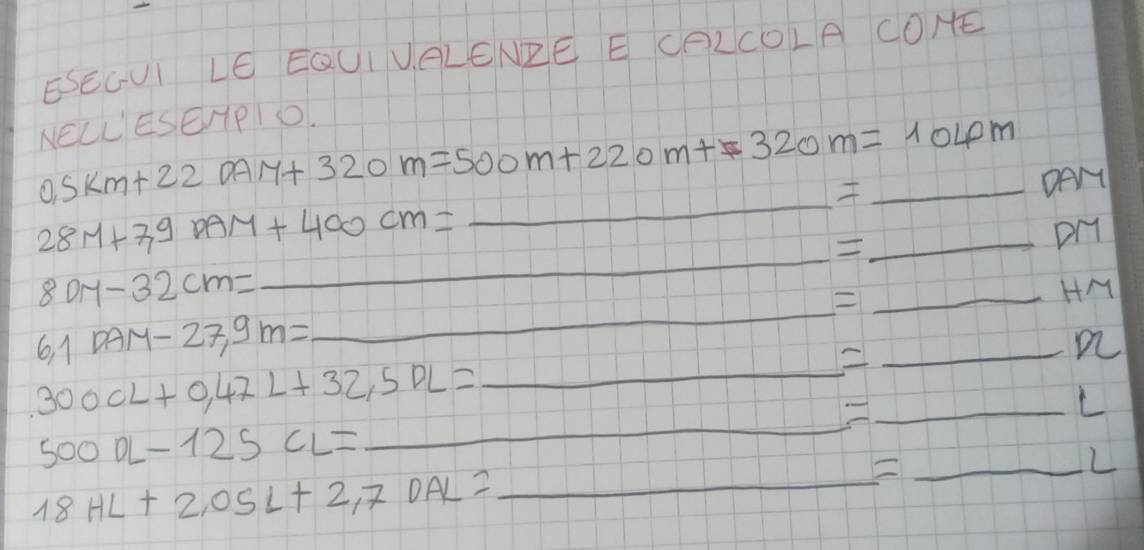 ESEGUI LE EQUIVALENZE E CALCOLA COME
NELL'ESEMPIO.
0,5Km+22 DAM+320m=500m+220m+320m=1040m
28M+7,9 DAM+400cm=__________=______DAM
8DM-32cm=__________=______DM
6,1 DAM-27,9m=__________=______HM
300CL+0,47L+32,5DL=__________=______DL
500DL-125 CL=__________=______L
18HL+2,05L+2,7 DAL=__________=______L